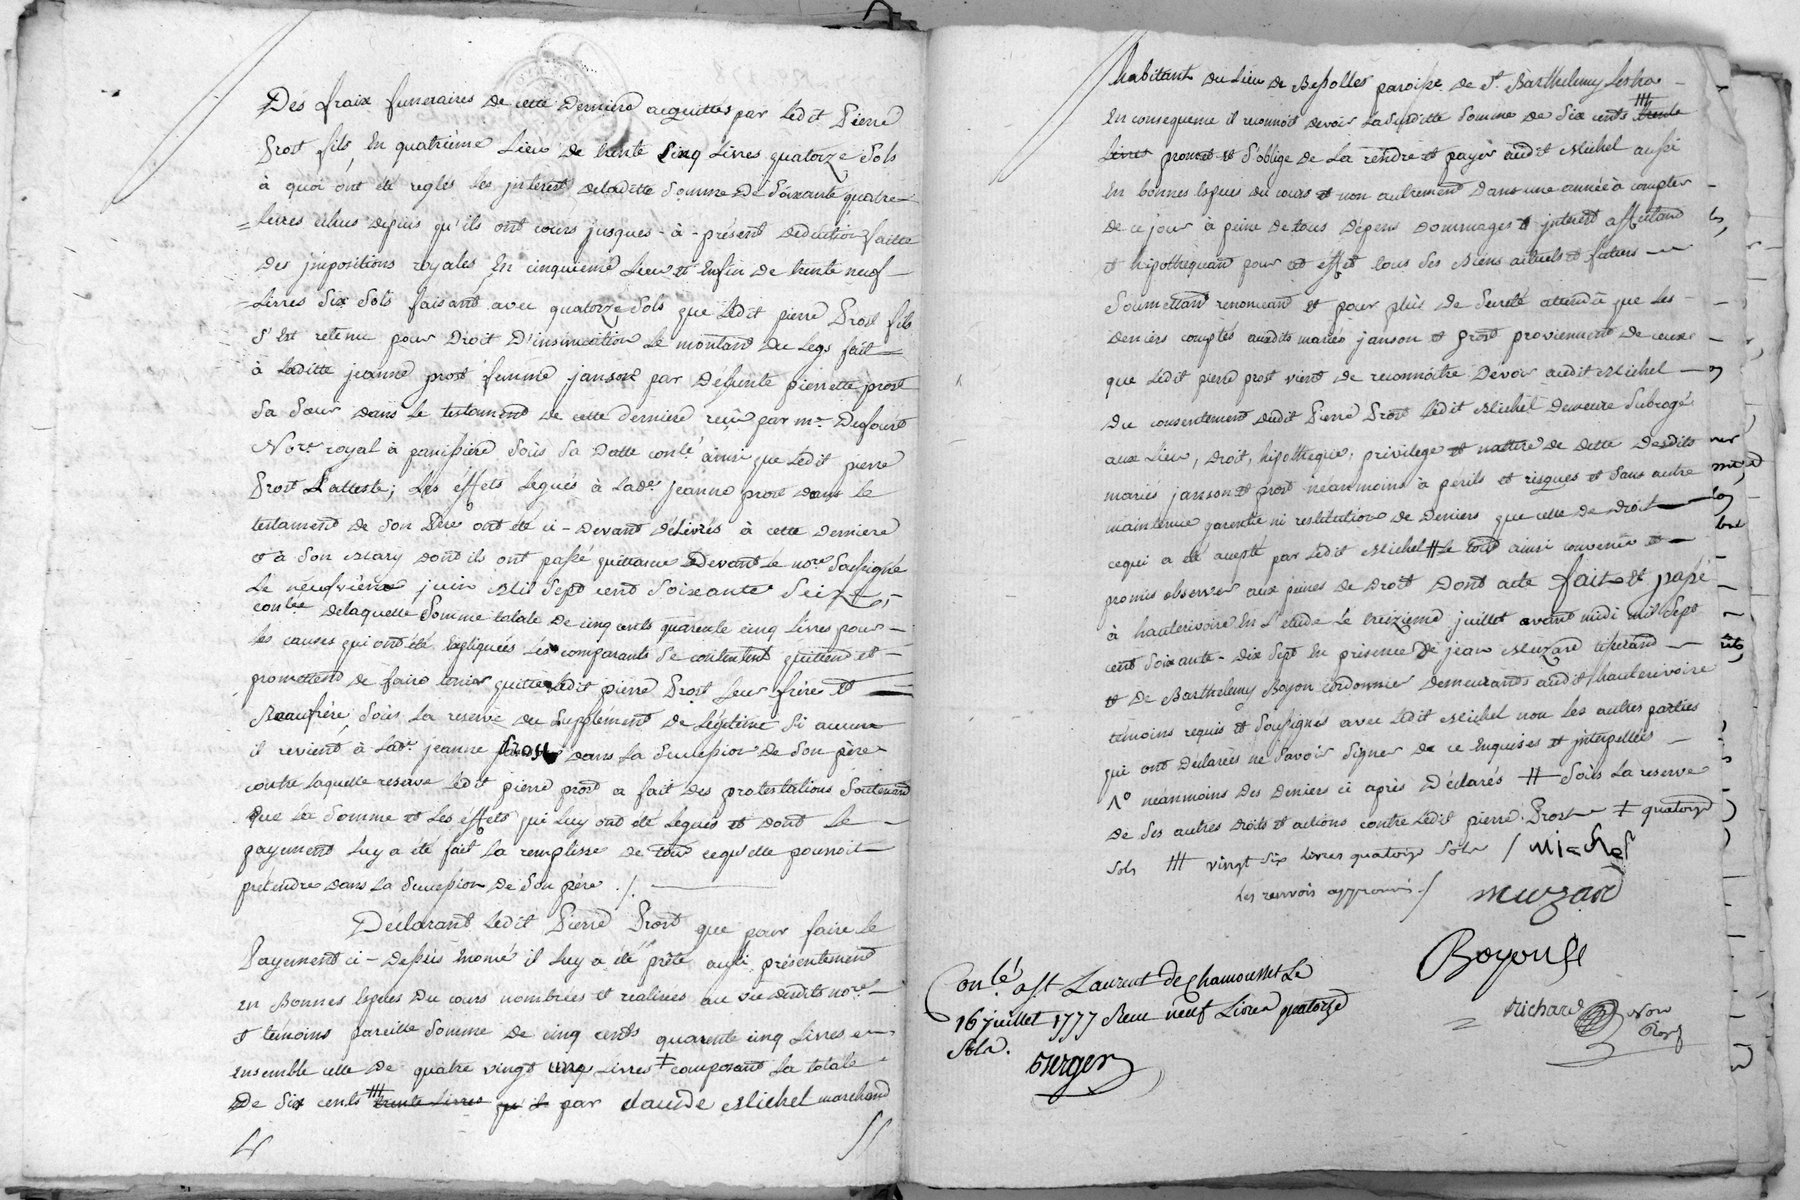 Des fraix funeraires de cette derniere acquittés par ledit Pierre
Prost fils En quatrieme Lieu de trente cinq Livres quatorze sols
à quoi ont été reglés les jnterest deladitte somme de soixante quatre
Livres échus depuis qu'ils ont cours jusques-à-présent deduction faitte
des jmpositions royales En cinquieme Lieu et Enfin de trente neuf
Livres six sols faisant avec quatorze sols que ledit pierre Prost fils
s'Est retenu pour droit D'insinuation le montant du Legs fait
à laditte jeanne prost femme janson par défunte pierrette prost
sa sœur dans le testament de cette derniere reçû par me.
Nore. royal à panissiere sous sa datte conlé ainsi que ledit pierre
Prost L'atteste; les éffets legués à lade. jeanne prost dans le
testament de son Pere ont été ci-devant délivrés à cette derniere
et à son Mary dont ils ont passé quittance Devant le nore. soussigné
le neufvieme juin Mil sept cent soixante seize,
conlée delaquelle somme totale de cinq cents quarente cinq Livres pour
les causes qui ont été Expliquées Les comparants se contentent quittent et
promettent de faire tenir quitte ledit pierre Prost leur frere et
Beaufrere, sous la reserve du supplément de légitime si aucun
il revient à lade. jeanne Prost dans la succession de son père
contre laquelle reserve ledit pierre prost a fait des protestations soutenant
que la somme et les effets qui luy ont été legués et dont le
payement luy a été fait la remplisse de tout cequ'elle pouvoit
prétendre dans la succession de son père ./.
Declarant ledit Pierre Prost que pour faire le
Payement ci-dessus Enoncé il luy a été prêté aussi présentement
en Bonnes Especes du cours nombrées et realisées au vu desdits nore.
et témoins pareille somme de cinq cents quarente cinq Livres en
ensemble celle de quatre vingt cinq Livres ‡ composant la totale
De six cents ⧻ trente Livres qu'il par claude Michel marchand
habitant du Lieu de Bessolles paroisse de St. Barthelemy Lestra
En consequence il reconnoit devoir la susditte somme de six cents ⧻ trente
Livres promet et s'oblige de la rendre et payer audit Michel aussi
En bonnes Especes du cours et non autrement dans une année à compter
de ce jour à peine de tous dépens dommages et jnterest affectant
et hipothéquant pour cet effet tous ses Biens actuels et futurs
soumettant renonceant et pour plus de sureté attendû que les
deniers comptés auxdits mariés janson et prost proviennent de ceux
que ledit pierre prost vient de reconnoitre devoir audit Michel
Du consentement dudit Pierre Prost ledit Michel demeure subrogé
aux Lieu, droit, hipotheque, privilege et nature de dette desdits
mariés janson et prost néanmoins à périls et risques et sans autre
maintenue garentie ni restitution de deniers que celle de droit
cequi a été accepté par ledit Michel # le tout ainsi convenû et
promis observer aux peines de droit Dont acte fait et passé
à hauterivoire En L'etude le treizieme juillet avant midi mil sept
cent soixante-dix sept En présence de jean Muzard tisserand
et de Barthelemy Boyon cordonnier demeurants audit hauterivoire
témoins requis et soussignés avec ledit Michel non les autres parties
qui ont déclarées ne savoir signer de ce Enquises et jnterpellées
1° néanmoins des deniers ci après déclarés # sous la reserve
de ses autres droits et actions contre ledit pierre Prost ‡ quatorze
sols ⧻ vingt six livres quatorze sols / Michel
les renvois approuvés ./ muzard
Boyon
Richard Nore Royl
Conlé a St Laurent de Chamousset Le
16 juillet 1777 Recu neuf Livres quatorze
Sols.
verger